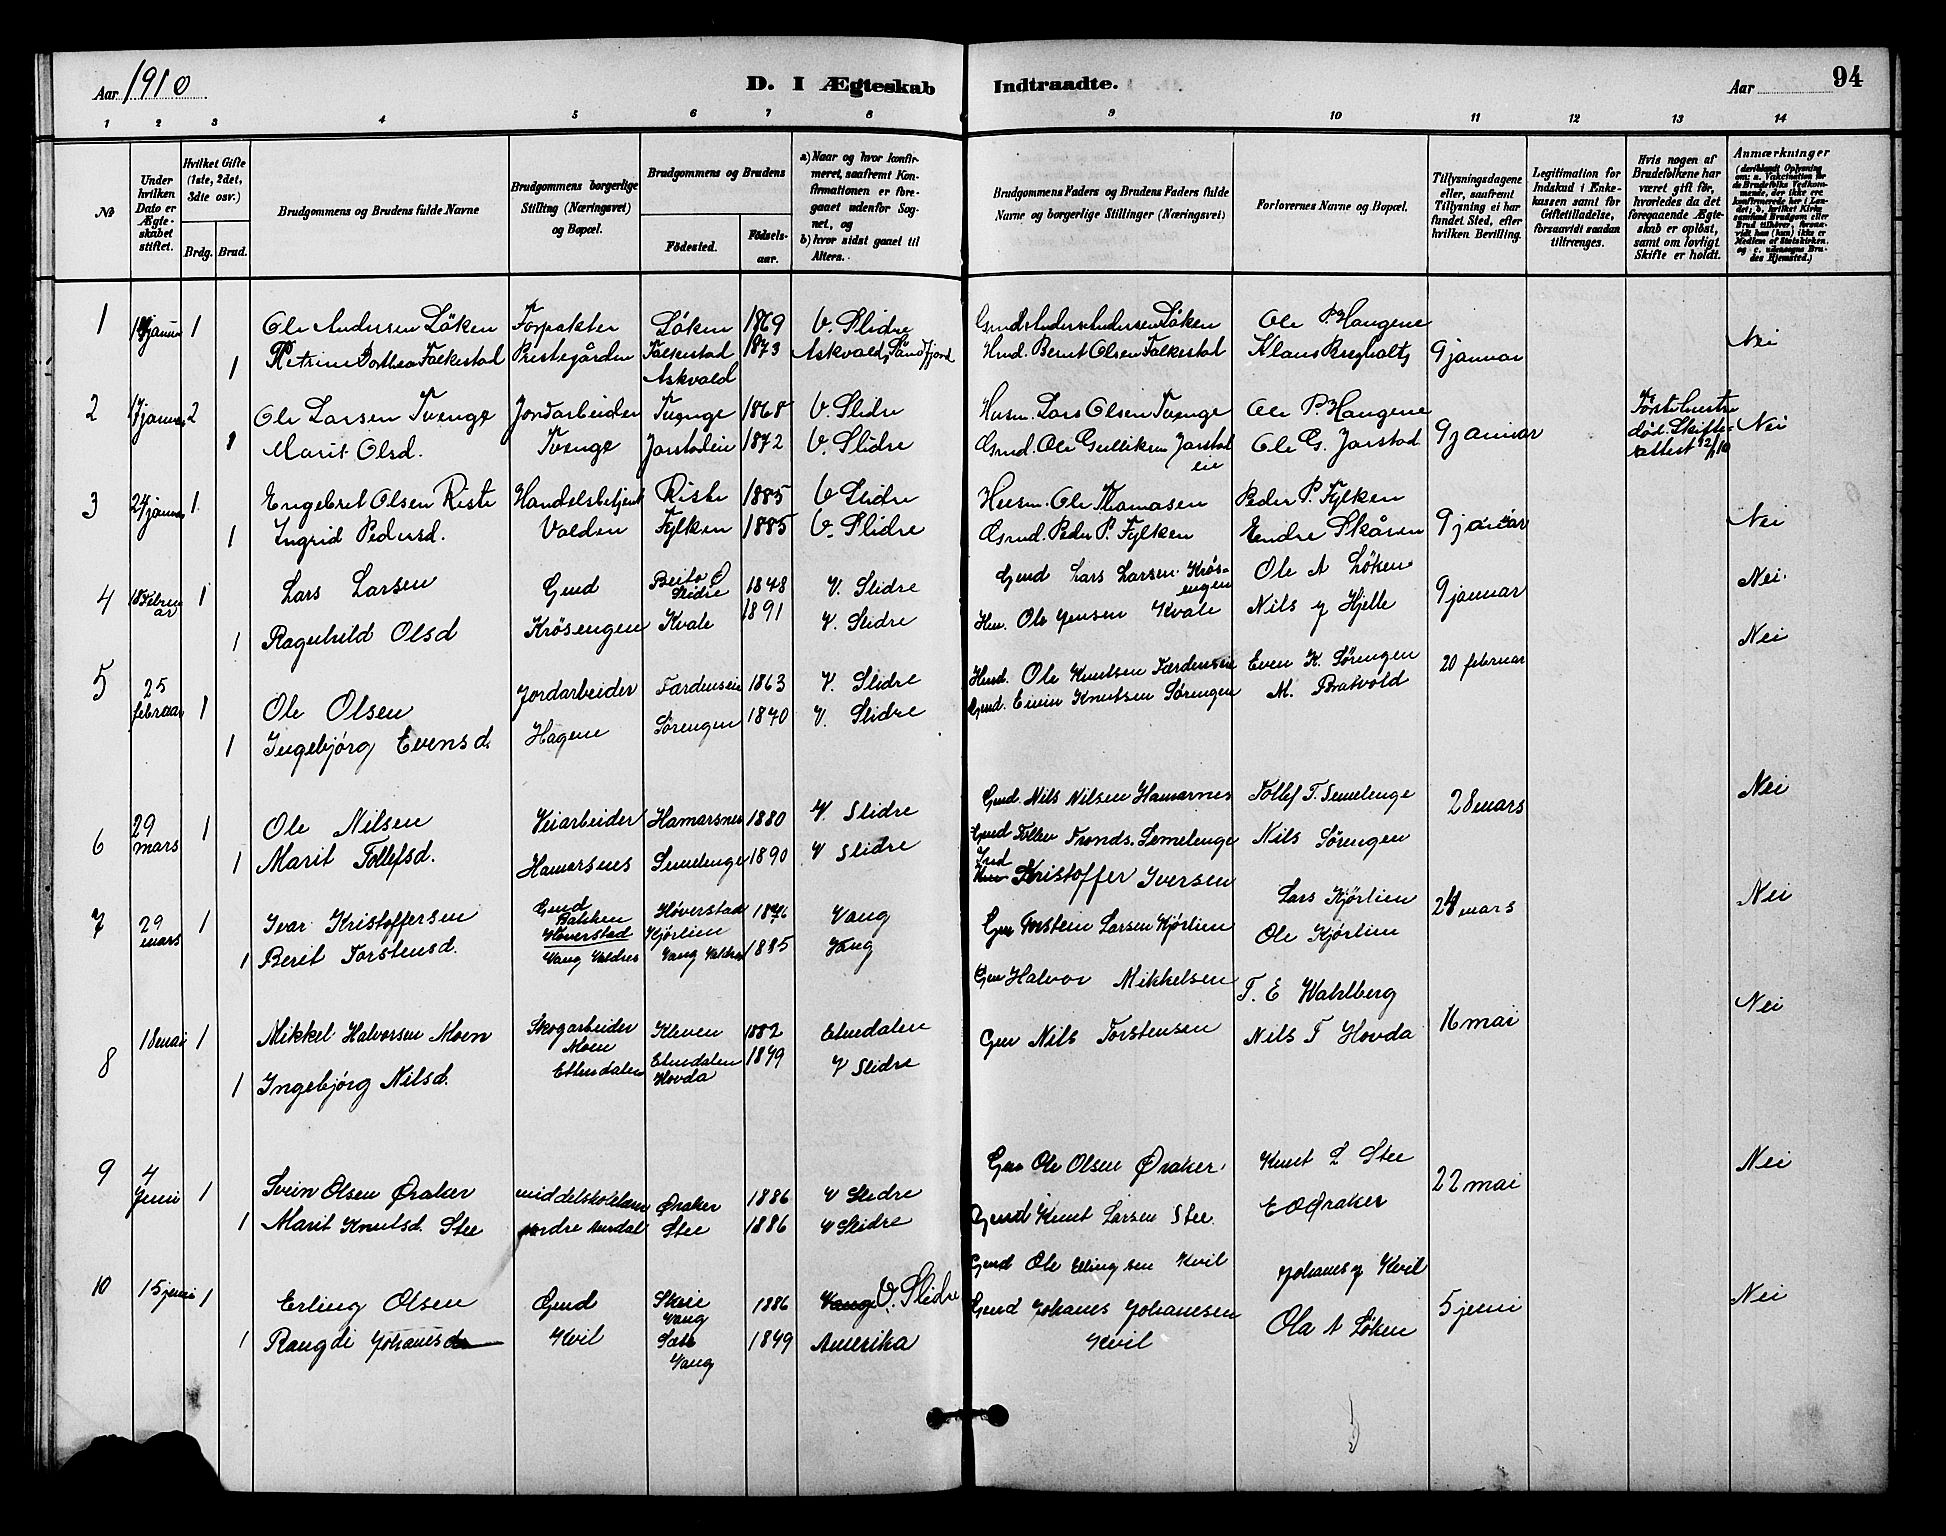 Aar 1910
D. I Ægteskab Indtraadte.
Aar 94
1 2 3 4 5 6 7 8 9 10 11 12 13 14
No
Under hvilken Dato er Ægteskabet stiftet.
Hvilket Gifte (1ste, 2det, 3die osv.)
Brdg. Brud.
Brudgommens og Brudens fulde Navne
Brudgommens borgerlige Stilling (Næringsvei) og Bopæl.
Brudgommens og Brudens
Fødested.
Fødselsaar.
a) Naar og hvor konfirmeret, saafremt Konfirmationen er foregaaet udenfor Sognet, og
b) hvor sidst gaaet til Alters.
Brudgommens Faders og Brudens Faders fulde Navne og borgerlige Stillinger (Næringsvei)
Forlovernes Navne og Bopæl.
Tillysningsdagene eller, saafremt Tillysning ei har fundet Sted, efter hvilken Bevilling.
Legitimation for Indskud i Enkekassen samt for Giftetilladelse, forsaavidt saadan tiltrænges.
Hvis nogen af Brudefolkene har været gift før, hvorledes da det foregaaende Ægteskab er opløst, samt om lovligt Skifte er holdt.
Anmærkninger
1 januar 1 Ole Andersen Løken Forpakter Løken 1869 V. Slidre Anders Andersen Løken Ole P. Haugene
1 Petrine Dorthea Falkestad Prestegården Falkestad 1873 Askvold, Søndfjord Berut Olsen Falkestad Klaus 9 januar Nei
Askvold
2 17 januar 2 Ole Larsen Tvenge Jordarbeider Tvenge 1868 V. Slidre Husm. Lars Olsen Tvenge Ole P. Haugene Første hustru
1 Marit Olsd. Tvenge Jarstadeie 1872 V. Slidre Grud. Ole Gulliksen Jarstad Ole G. Jarstad 9 januar død. Skifte- Nei
eie attest 12/1 10
3 24 januar 1 Engebret Olsen Riste Handelsbetjent Riste 1885 V Slidre Husm. Ole Thomasen Peder P. Fylken
1 Ingrid Pedersd. Volden Fylken 1885 V. Slidre Grud. Peder P. Fylken Endre Skåren 9 januar Nei
4 18 Februar 1 Lars Larsen Grud Beito Ø Slidre 1848 V. Slidre Grud Lars Larsen Krøsengen Ole A Løken 9 januar Nei.
1 Ragnhild Olsd Krøsengen Kvale 1891 V. Slidre Hm. Ole Jensen Kvale Nils J Hjelle Nei
5 25 februar 1 Ole Olsen Jordarbeider Færdenseie 1863 V. Slidre Ole Knutsen Færdenseie Even K. Sørengen 20 februar
1 Ingebjørg Evensd. Hagene Sørengen 1870 V. Slidre Grud. Eivin Knutsen Sørengen M. Bratvold
6 29 mars 1 Ole Nilsen Veiarbeider Hamarsnes 1880 V Slidre Grud. Nils Nilsen Hamarnes Tollef T. Semelenge 28 mars Nei
1 Marit Tollefsd. Hamarsnes Semelenge 1890 V Slidre Grud Tronds. Semelenge Nils Sørengen
7 29 mars 1 Ivar Kristoffersen Grud Bakken Høverstad Høverstad 1876 Vang Ind Kristoffer Iversen Lars Kjørlien 28 mars Nei
1 Berit Torstensd. Vang Valdres Kjørlien Vang Valdres 1885 Vang Gm Torstein Larsen Kjørlien Ole Kjørlien
8 18 mai 1 Mikkel Halvorsen Moen Skogarbeider Moen Kleven 1882 Etnedalen Gm Halvor Mikkelsen T. E Wahlberg 16 mai Nei
1 Ingebjørg Nilsd. Ettendalen Etnedalen Hovda 1879 V Slidre Gm Nils Torstensen Nils T Hovda
9 4 Juni 1 Svein Olsen Øraker middelskolelærer Øraker 1886 V Slidre Gm Ole Olsen Øraker Knut L Stee 22 mai Nei
1 Marit Knutsd. Stee nordre Aurdal Stee 1886 V Slidre Grud Knut Larsen Stee. E O Øraker
10 15 juni 1 Erling Olsen Grud Skeie Vang 1886 Vang V. Slidre Grud Ole Ellingsen Kvil Johanes J Kvil 5 juni Nei
1 Rangdi Johanesd Kvil Vang 1879 Amerika Grud Johanes Johanesen Kvil Ola A Løken